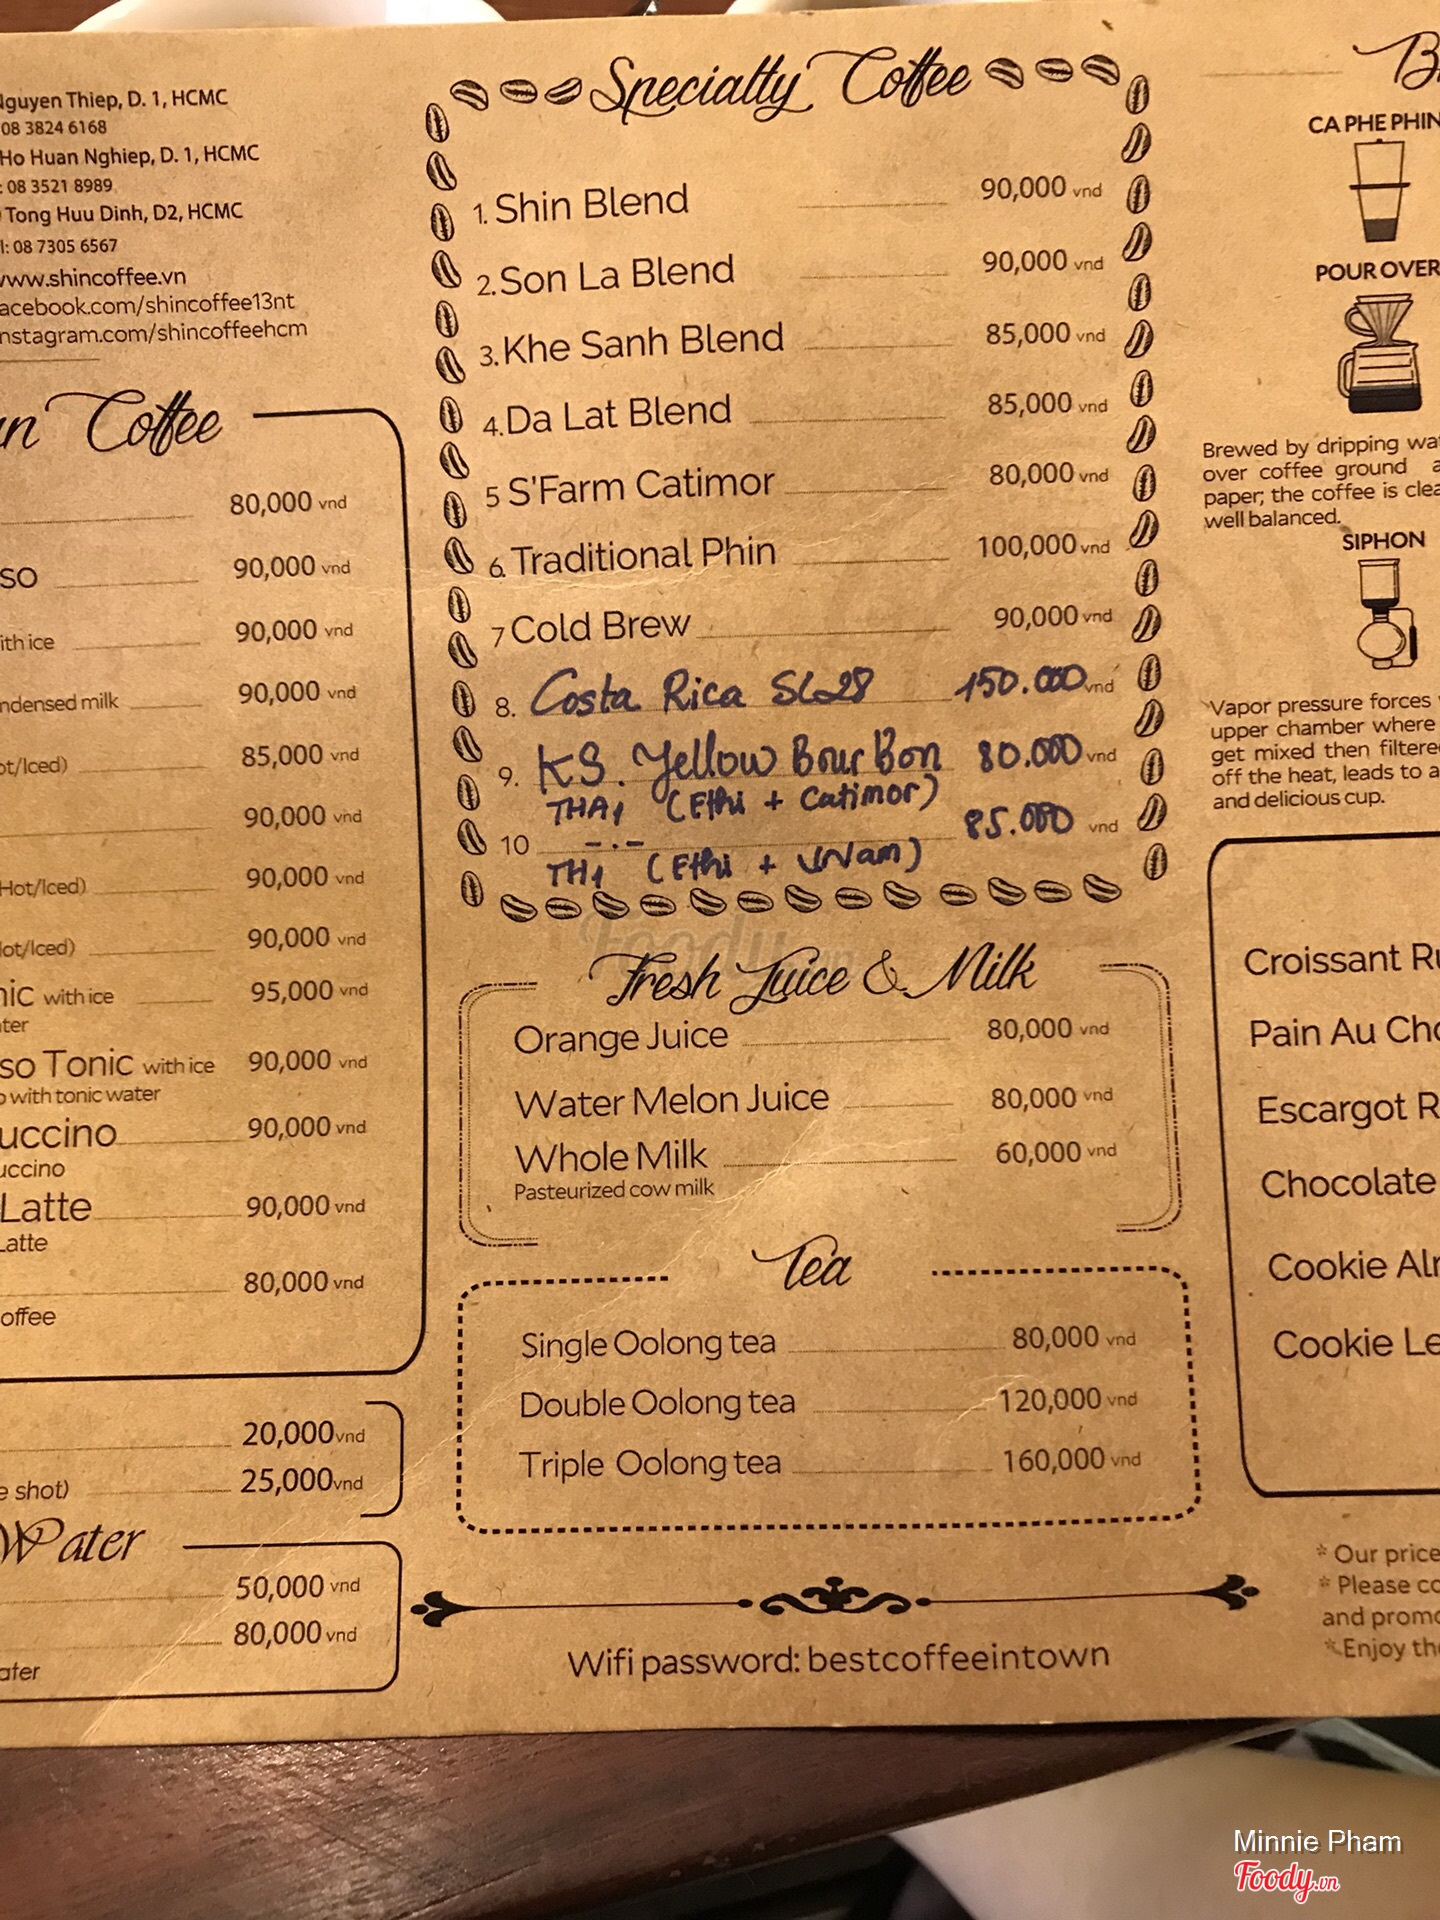 Nguyen Thiep, D. 1, HCMC
08 3824 6168
Ho Huan Nghiep, D. 1, HCMC
: 08 3521 8989
Tong Huu Dinh, D2, HCMC
l: 08 7305 6567
www.shincoffee.vn
acebook.com/shincoffee13nt
nstagram.com/shincoffeehcm
an Coffee
80,000 vnd
so 90,000 vnd
ith ice 90,000 vnd
ndensed milk 90,000 vnd
ot/Iced) 85,000 vnd
90,000 vnd
Hot/Iced) 90,000 vnd
Hot/Iced) 90,000 vnd
nic with ice 95,000 vnd
ater
so Tonic with ice 90,000 vnd
o with tonic water
uccino 90,000 vnd
uccino
Latte 90,000 vnd
Latte
80,000 vnd
offee
20,000 vnd
e shot) 25,000 vnd
Water
50,000 vnd
80,000 vnd
ater
Specialty Coffee
1. Shin Blend 90,000 vnd
2. Son La Blend 90,000 vnd
3. Khe Sanh Blend 85,000 vnd
4. Da Lat Blend 85,000 vnd
5 S'Farm Catimor 80,000 vnd
6. Traditional Phin 100,000 vnd
7 Cold Brew 90,000 vnd
8. Costa Rica SL28 150.000 vnd
9. KS. Yellow BourBon 80.000 vnd
THA1 (Ethi + Catimor)
10 -.- 85.000 vnd
TH1 (Ethi + VNam)
Fresh Juice & Milk
Orange Juice 80,000 vnd
Water Melon Juice 80,000 vnd
Whole Milk 60,000 vnd
Pasteurized cow milk
Tea
Single Oolong tea 80,000 vnd
Double Oolong tea 120,000 vnd
Triple Oolong tea 160,000 vnd
Wifi password: bestcoffeeintown
B
CA PHE PHIN
POUR OVER
Brewed by dripping wat
over coffee ground a
paper; the coffee is clea
well balanced.
SIPHON
Vapor pressure forces
upper chamber where
get mixed then filtered
off the heat, leads to a
and delicious cup.
Croissant Ru
Pain Au Cho
Escargot R
Chocolate
Cookie Alm
Cookie Le
* Our price
* Please co
and promo
* Enjoy the
Foody.vn
Minnie Pham
Foody.vn